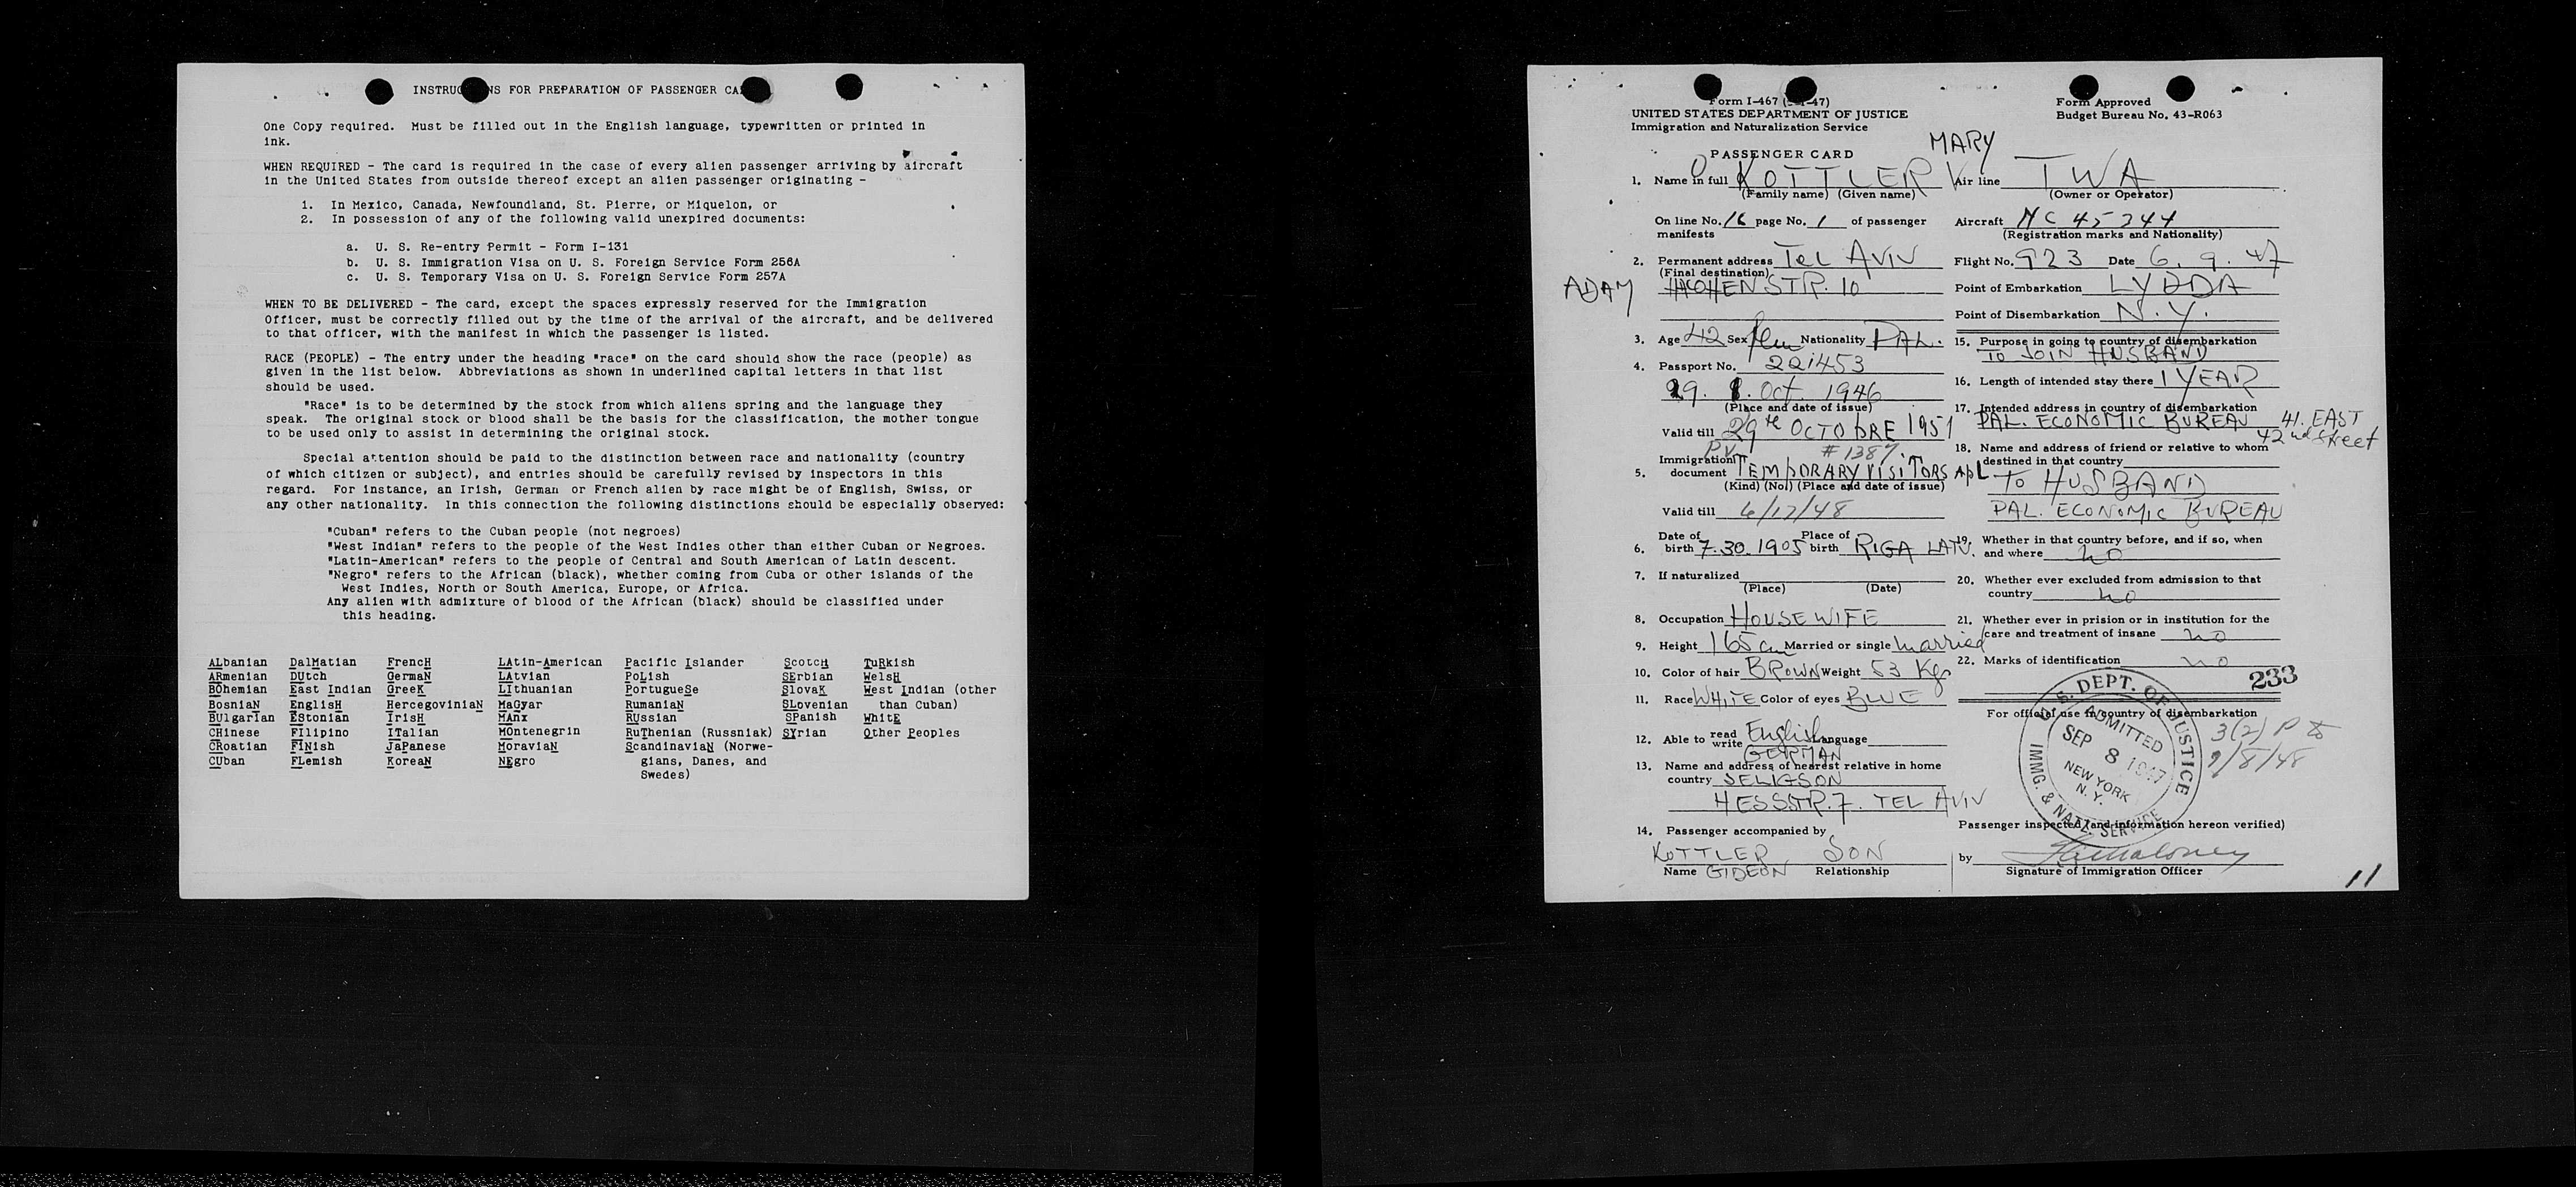 INSTRUC NS FOR PREPARATION OF PASSENGER CA
One Copy required. Must be filled out in the English language, typewritten or printed in
ink.
WHEN REQUIRED - The card is required in the case of every alien passenger arriving by aircraft
in the United States from outside thereof except an alien passenger originating -
1. In Mexico, Canada, Newfoundland, St. Pierre, or Miquelon, or
2. In possession of any of the following valid unexpired documents:
a. U. S. Re-entry Permit - Form I-131
b. U. S. Immigration Visa on U. S. Foreign Service Form 256A
c. U. S. Temporary Visa on U. S. Foreign Service Form 257A
WHEN TO BE DELIVERED - The card, except the spaces expressly reserved for the Immigration
Officer, must be correctly filled out by the time of the arrival of the aircraft, and be delivered
to that officer, with the manifest in which the passenger is listed.
RACE (PEOPLE) - The entry under the heading "race" on the card should show the race (people) as
given in the list below. Abbreviations as shown in underlined capital letters in that list
should be used.
"Race" is to be determined by the stock from which aliens spring and the language they
speak. The original stock or blood shall be the basis for the classification, the mother tongue
to be used only to assist in determining the original stock.
Special attention should be paid to the distinction between race and nationality (country
of which citizen or subject), and entries should be carefully revised by inspectors in this
regard. For instance, an Irish, German or French alien by race might be of English, Swiss, or
any other nationality. In this connection the following distinctions should be especially observed:
"Cuban" refers to the Cuban people (not negroes)
"West Indian" refers to the people of the West Indies other than either Cuban or Negroes.
"Latin-American" refers to the people of Central and South American of Latin descent.
"Negro" refers to the African (black), whether coming from Cuba or other islands of the
West Indies, North or South America, Europe, or Africa.
Any alien with admixture of blood of the African (black) should be classified under
this heading.
ALbanian DalMatian FrencH LAtin-American Pacific Islander ScotcH TuRkish
ARmenian DUtch GermaN LAtvian PoLish SErbian WelsH
BOhemian East Indian GreeK LIthuanian PortugueSe SlovaK West Indian (other
BosniaN EnglisH HercegoviniaN MaGyar RumaniaN SLovenian than Cuban)
BUlgarIan EStonian IrisH MAnx RUssian SPanish WhitE
CHinese FIlipino ITalian MOntenegrin RuThenian (Russniak) SYrian Other Peoples
CRoatian FiNish JaPanese MoraviaN ScandinaviaN (Norwe-
CUban FLemish KoreaN NEgro gians, Danes, and
Swedes)
Form I-467 ( -47)
UNITED STATES DEPARTMENT OF JUSTICE
Immigration and Naturalization Service
Form Approved
Budget Bureau No. 43-R063
PASSENGER CARD
MARY
1. Name in full KOTTLER
(Family name) (Given name)
Air line TWA
(Owner or Operator)
On line No. 16 page No. 1 of passenger
manifests
Aircraft NC 45344
(Registration marks and Nationality)
2. Permanent address TEL AVIV
(Final destination)
ADAM HACOHEN STR. 10
Flight No. 923 Date 6. 9. 47
Point of Embarkation LYDDA
Point of Disembarkation N. Y.
3. Age 42 Sex fem Nationality PAL.
4. Passport No. 221453
29. Oct. 1946
(Place and date of issue)
Valid till 29th OCTOBRE 1951
PV # 1387
5. Immigration document TEMPORARY VISITORS
(Kind) (No.) (Place and date of issue)
Valid till 6/17/48
6. Date of birth 7.30.1905 Place of birth RIGA LATV.
7. If naturalized
(Place) (Date)
8. Occupation HOUSEWIFE
9. Height 165 cm Married or single married
10. Color of hair BROWN Weight 53 Kg
11. Race WHITE Color of eyes BLUE
12. Able to read write English Language
GERMAN
13. Name and address of nearest relative in home
country SELIGSON
HESSSTR. 7. TEL AVIV
14. Passenger accompanied by
KOTTLER SON
Name GIDEON Relationship
15. Purpose in going to country of disembarkation
TO JOIN HUSBAND
16. Length of intended stay there 1 YEAR
17. Intended address in country of disembarkation
PAL. ECONOMIC BUREAU 41. EAST
42nd Street
18. Name and address of friend or relative to whom
destined in that country
TO HUSBAND
PAL. ECONOMIC BUREAU
19. Whether in that country before, and if so, when
and where no
20. Whether ever excluded from admission to that
country no
21. Whether ever in prision or in institution for the
care and treatment of insane no
22. Marks of identification no
233
For official use in country of disembarkation
U. S. DEPT. OF JUSTICE
ADMITTED
SEP 8 1947
NEW YORK
N. Y.
IMMG. & NATZ. SERVICE
3(2) P to
9/8/48
Passenger inspected (and information hereon verified)
by
Signature of Immigration Officer
11